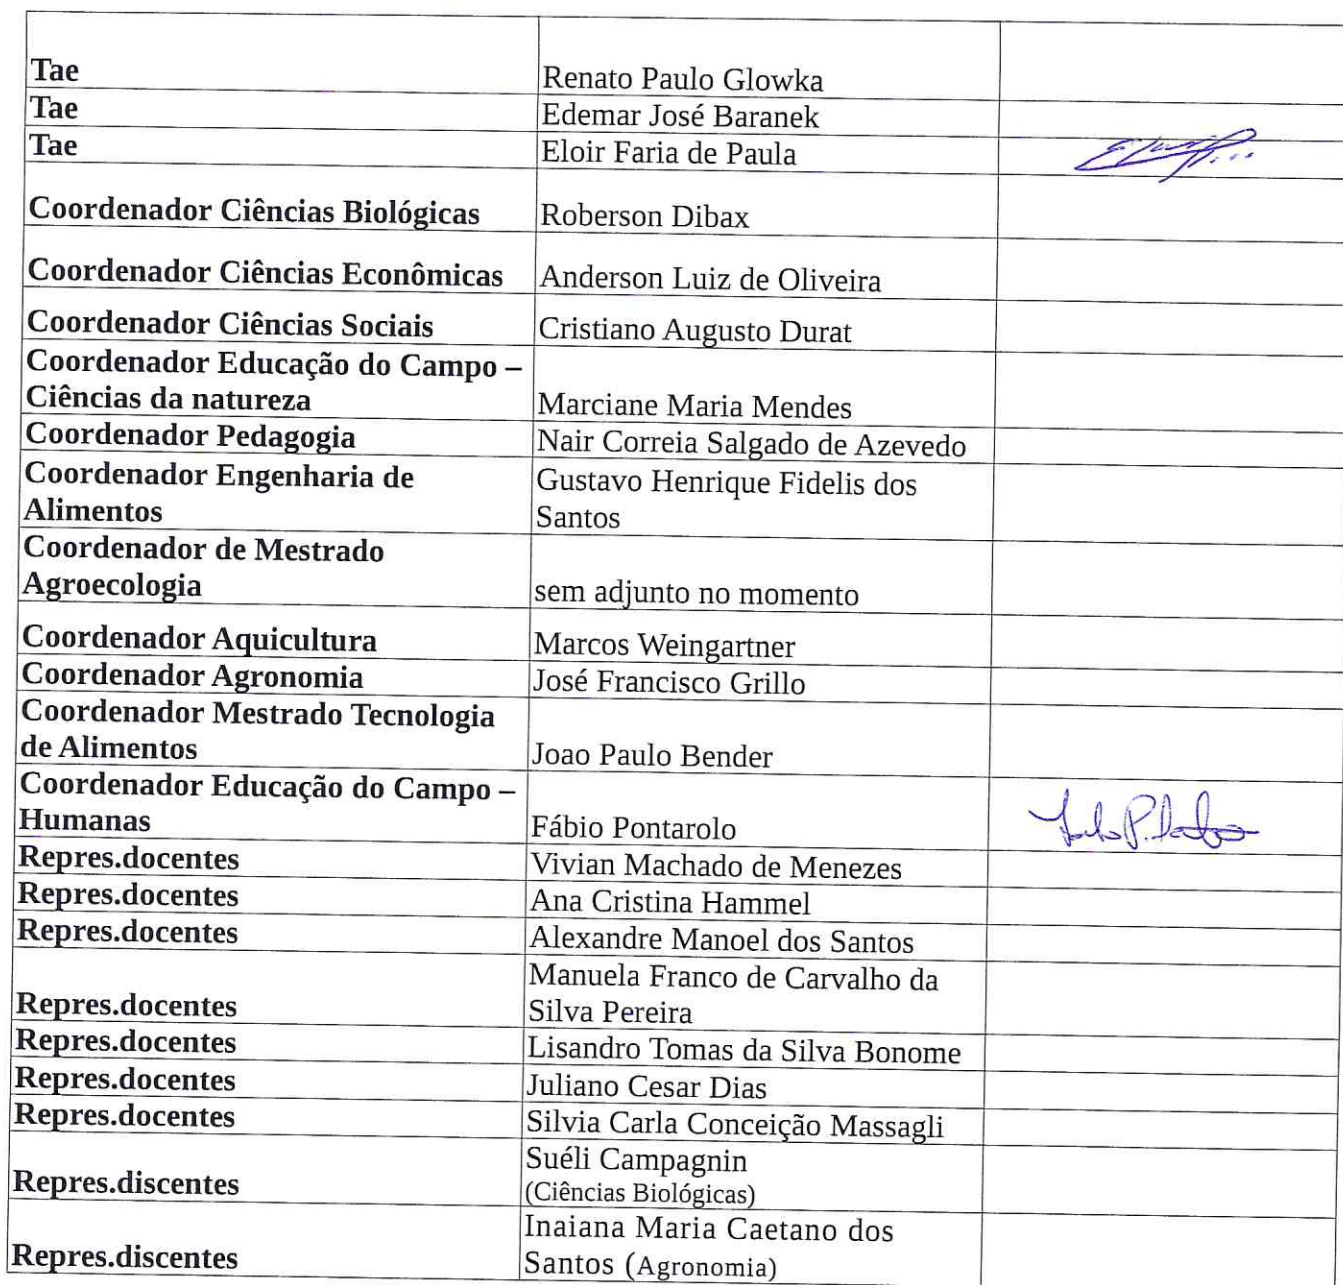 Tae Renato Paulo Glowka
Tae Edemar José Baranek
Tae Eloir Faria de Paula
Coordenador Ciências Biológicas Roberson Dibax
Coordenador Ciências Econômicas Anderson Luiz de Oliveira
Coordenador Ciências Sociais Cristiano Augusto Durat
Coordenador Educação do Campo –
Ciências da natureza Marciane Maria Mendes
Coordenador Pedagogia Nair Correia Salgado de Azevedo
Coordenador Engenharia de
Alimentos
Gustavo Henrique Fidelis dos
Santos
Coordenador de Mestrado
Agroecologia sem adjunto no momento
Coordenador Aquicultura Marcos Weingartner
Coordenador Agronomia José Francisco Grillo
Coordenador Mestrado Tecnologia
de Alimentos Joao Paulo Bender
Coordenador Educação do Campo –
Humanas Fábio Pontarolo
Repres.docentes Vivian Machado de Menezes
Repres.docentes Ana Cristina Hammel
Repres.docentes Alexandre Manoel dos Santos
Repres.docentes
Manuela Franco de Carvalho da
Silva Pereira
Repres.docentes Lisandro Tomas da Silva Bonome
Repres.docentes Juliano Cesar Dias
Repres.docentes Silvia Carla Conceição Massagli
Repres.discentes
Suéli Campagnin
(Ciências Biológicas)
Repres.discentes
Inaiana Maria Caetano dos
Santos (Agronomia)